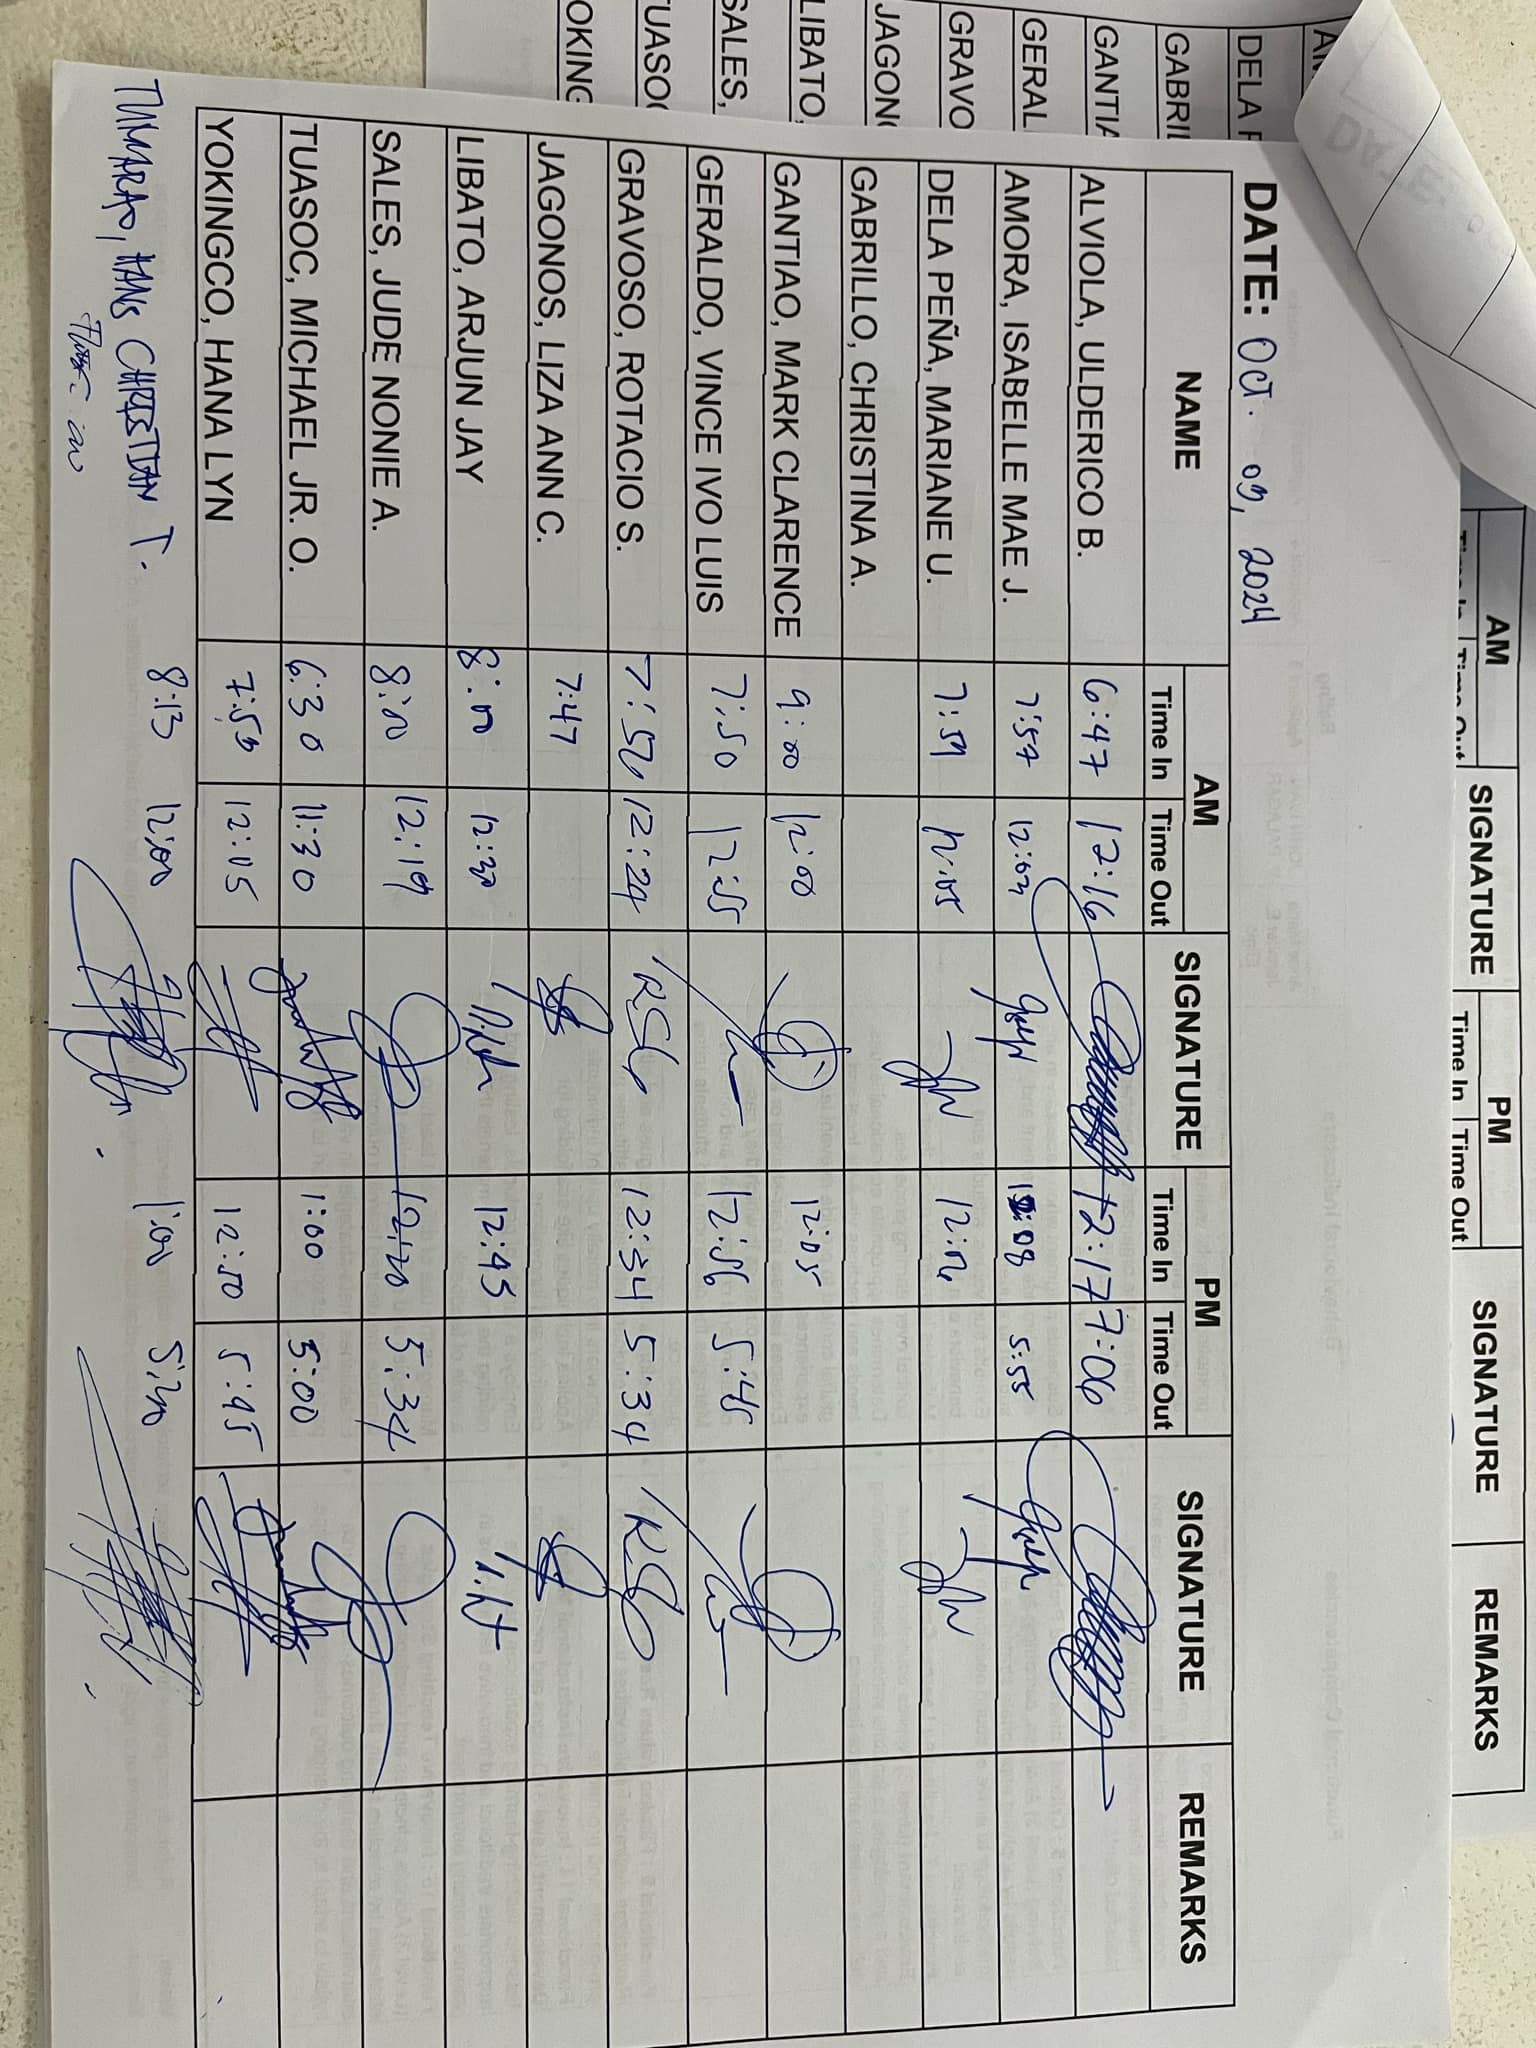 DATE: Oct. 09, 2024
NAME AM SIGNATURE PM SIGNATURE REMARKS
Time In Time Out Time In Time Out
ALVIOLA, ULDERICO B. 6:47 12:16 12:17 7:06
AMORA, ISABELLE MAE J. 7:57 12:03 5:55
DELA PEÑA, MARIANE U. 7:59 12:05 12:06
GABRILLO, CHRISTINA A.
GANTIAO, MARK CLARENCE 9:00 12:00 12:05
GERALDO, VINCE IVO LUIS 7:50 12:55 12:56 5:45
GRAVOSO, ROTACIO S. 7:56 12:24 RSG 12:34 5:34 RSG
JAGONOS, LIZA ANN C. 7:47
LIBATO, ARJUN JAY 8:00 12:30 12:45
SALES, JUDE NONIE A. 8:00 12:19 12:20 5:34
TUASOC, MICHAEL JR. O. 6:30 11:30 1:00 5:00
YOKINGCO, HANA LYN 7:53 12:05 12:50 5:45
TUMARAO, HANS CHRISTIAN T. 8:13 12:00 1:00
AM SIGNATURE PM SIGNATURE REMARKS
Time In Time Out Time In Time Out
DELA P
GABRIL
GANTIA
GERAL
GRAVO
JAGON
LIBATO,
SALES,
TUASO
OKING